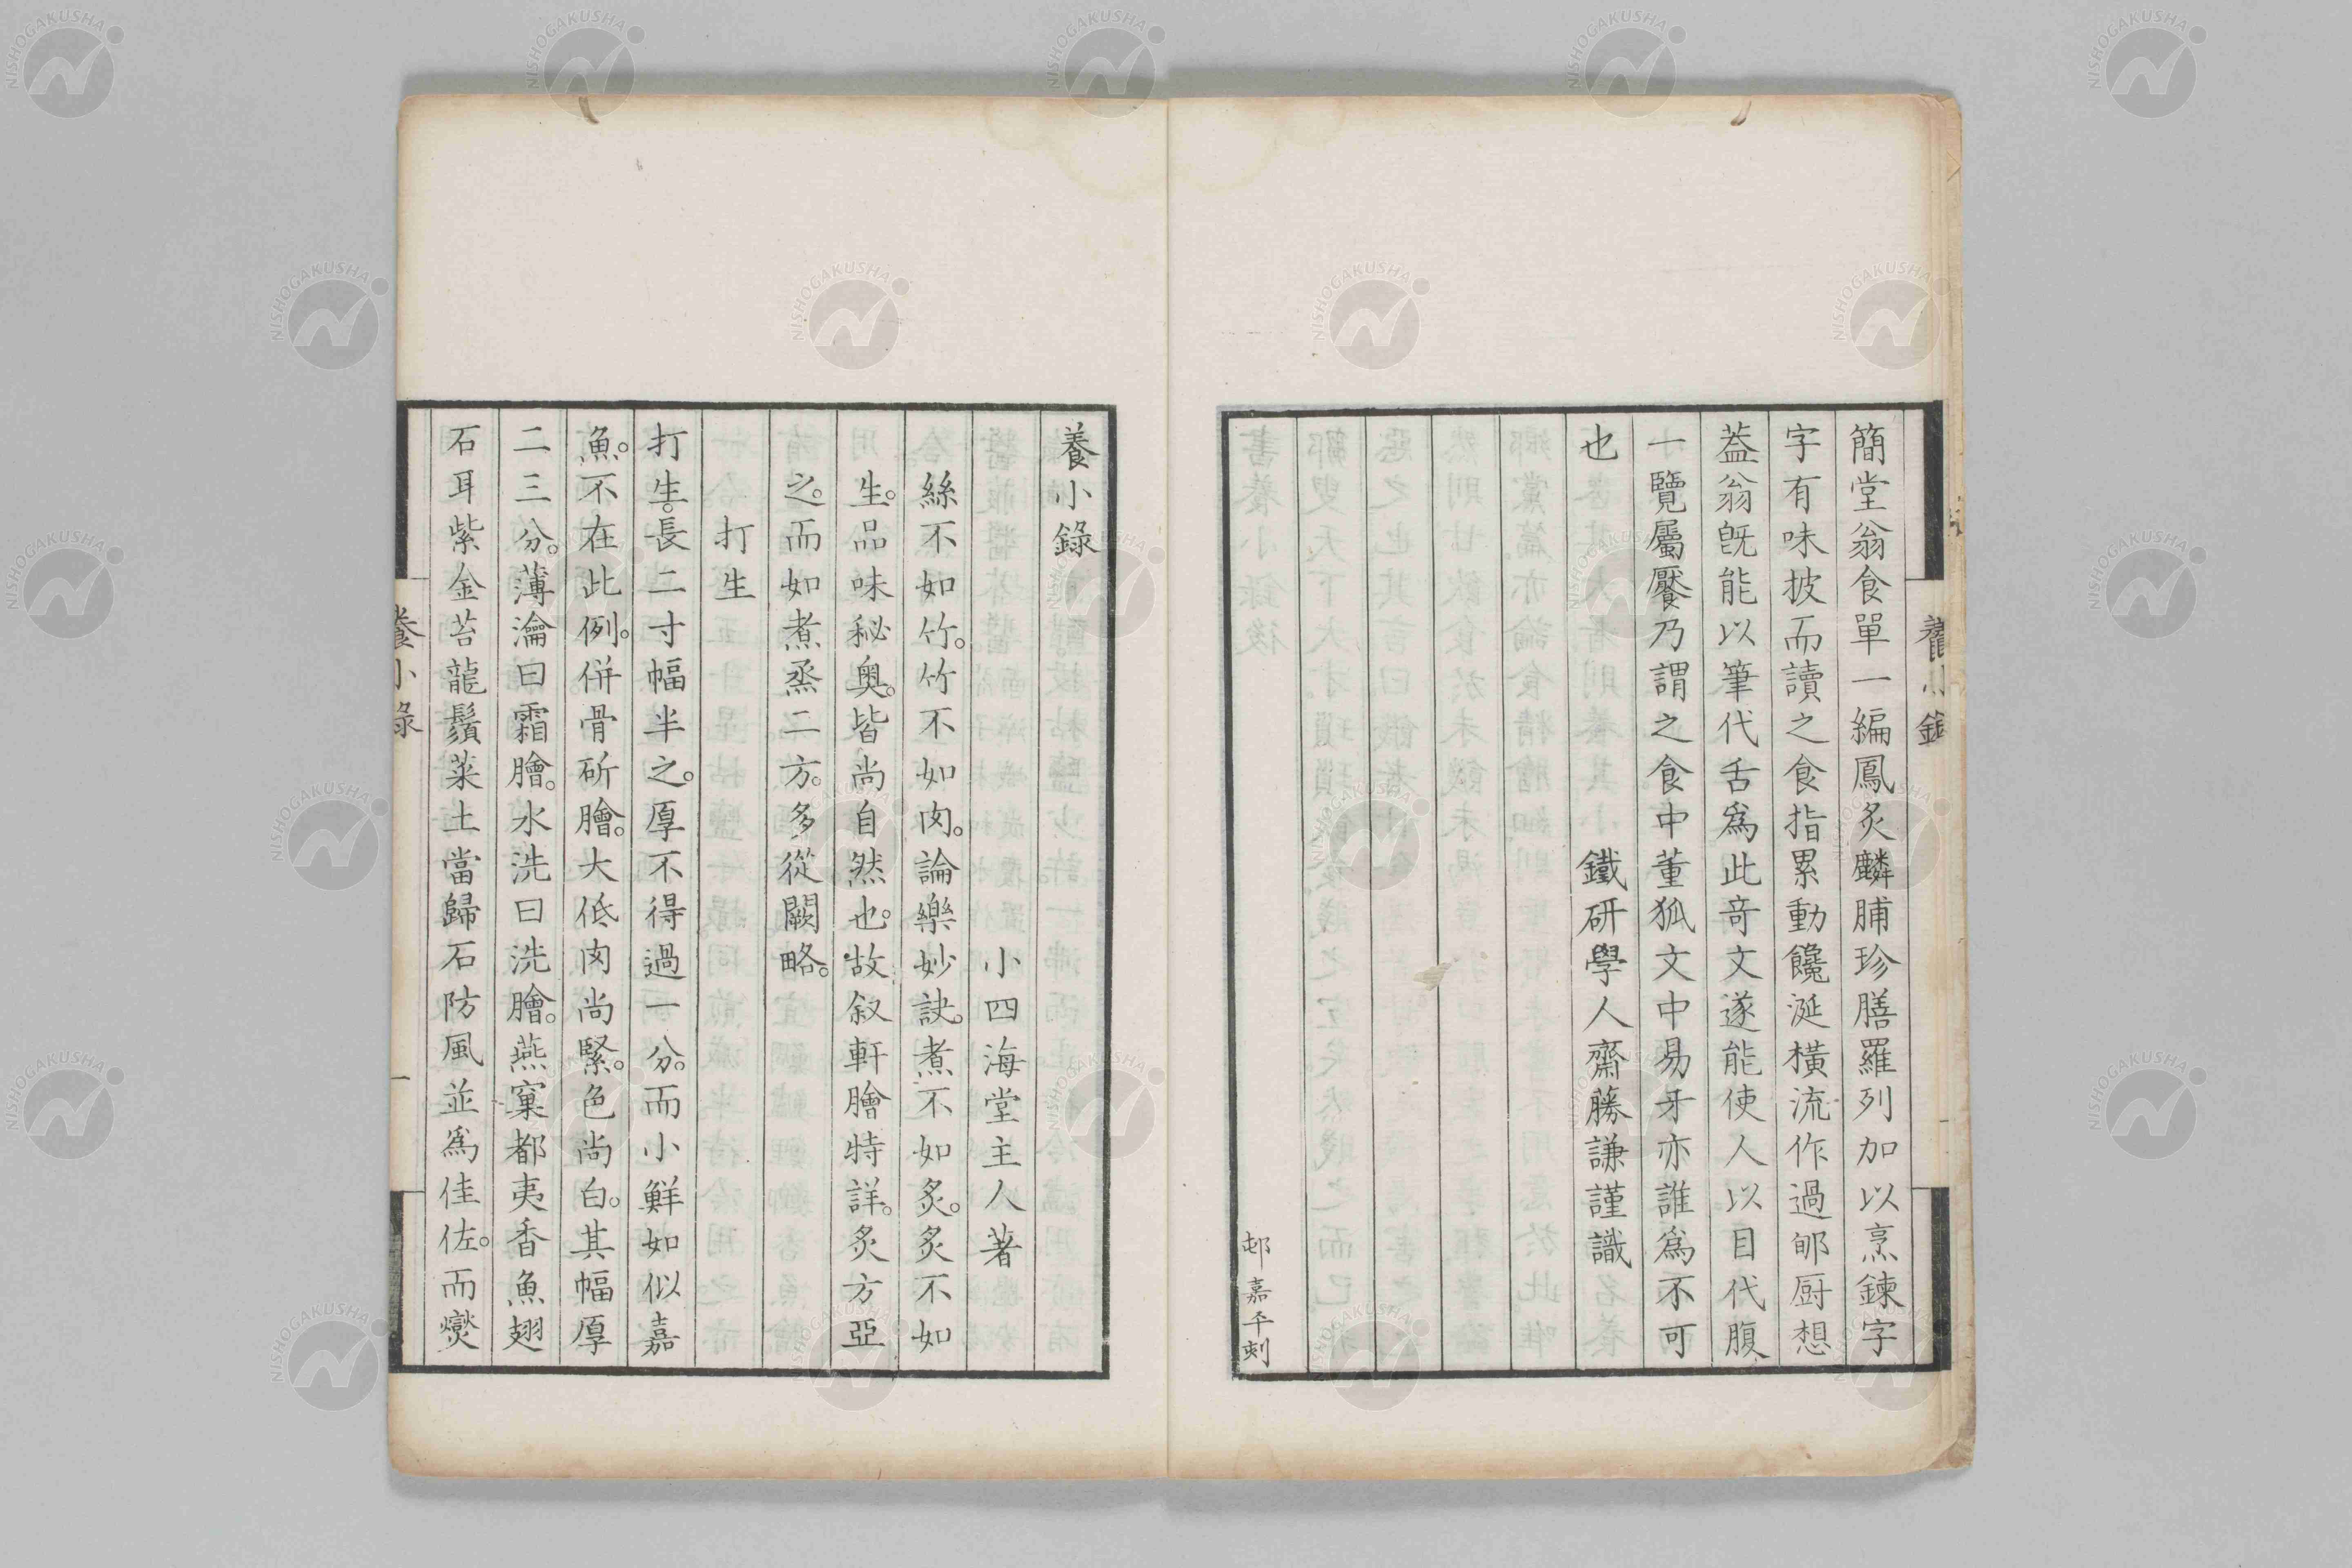 簡堂翁食單一編鳳炙麟脯珍膳羅列加以烹鍊字
字有味披而讀之食指累動饞涎橫流作過郇厨想
葢翁既能以筆代舌爲此竒文遂能使人以目代腹
一覽屬饜乃謂之食中董狐文中易牙亦誰爲不可
也
鐵研學人齋藤謙謹識
邨嘉平刻
養小錄
養小錄
小四海堂主人著
絲不如竹。竹不如肉。論樂妙訣。煮不如炙。炙不如
生。品味秘奧。皆尚自然也。故叙軒膾特詳。炙方亞
之。而如煮烝二方。多從闕略。
打生
打生。長二寸幅半之。厚不得過一分。而小鮮如似嘉
魚。不在此例。併骨斫膾。大低肉尚緊。色尚白。其幅厚
二三分。薄瀹曰霜膾。水洗曰洗膾。燕窠都夷香魚翅
石耳紫金苔龍鬚菜土當歸石防風並爲佳佐。而爕
養小錄
一
NISHOGAKUSHA